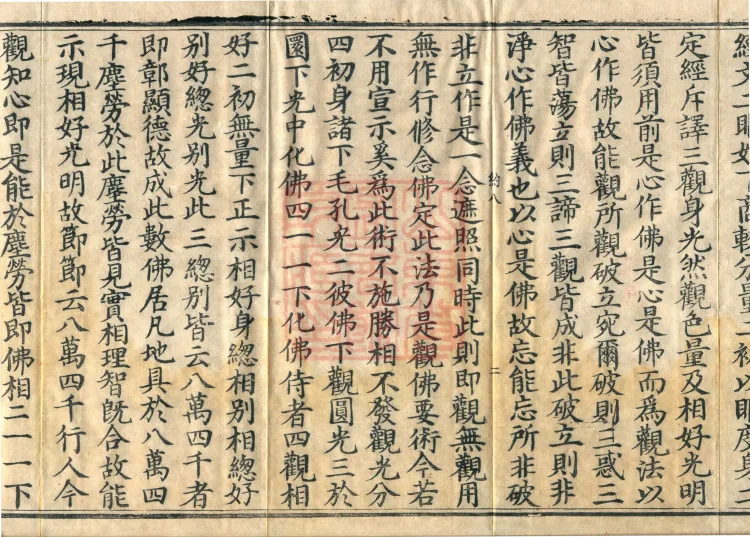 定經斥譯三觀身光然觀色量及相好光明
皆須用前是心作佛是心是佛而爲觀法以
心作佛故能觀所觀破立宛爾破則三惑三
智皆蕩立則三諦三觀皆成非此破立則非
淨心作佛義也以心是佛故忘能忘所非破
約八 二
非立作是一念遮照同時此則即觀無觀用
無作行修念佛定此法乃是觀佛要術今若
不用宣示奚爲此術不施勝相不發觀光分
四初身諸下毛孔光二彼佛下觀圓光三於
圓下光中化佛四一一下化佛侍者四觀相
好二初無量下正示相好身緫相別相緫好
別好緫光別光此三緫別皆云八萬四千者
即彰顯德故成此數佛居凡地具於八萬四
千塵勞於此塵勞皆見實相理智旣合故能
示現相好光明故節節云八萬四千行人今
觀知心即是能於塵勞皆即佛相二一一下